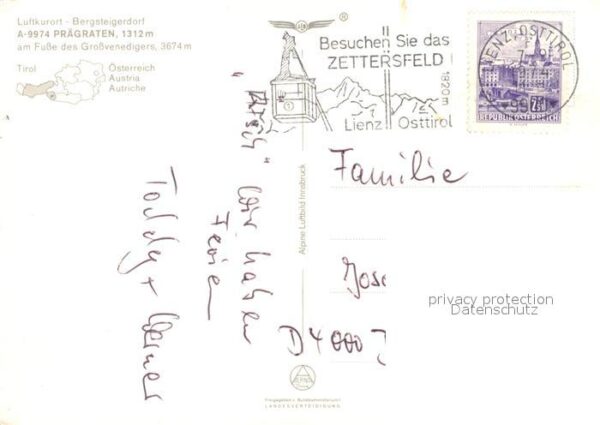 Luftkurort - Bergsteigerdorf
A-9974 PRÄGRATEN, 1312 m
am Fuße des Großvenedigers, 3674 m
Tirol
Österreich
Austria
Autriche
®
Besuchen Sie das
ZETTERSFELD
1820 m
Lienz Osttirol
LIENZ, OSTTIROL
REPUBLIK ÖSTERREICH
Alpine Luftbild Innsbruck
wir haben
Ferien
Toddy + Werner
Familie
Jose
D 4000
privacy protection
Datenschutz
Freigegeben v. Bundesministerium f.
LANDESVERTEIDIGUNG